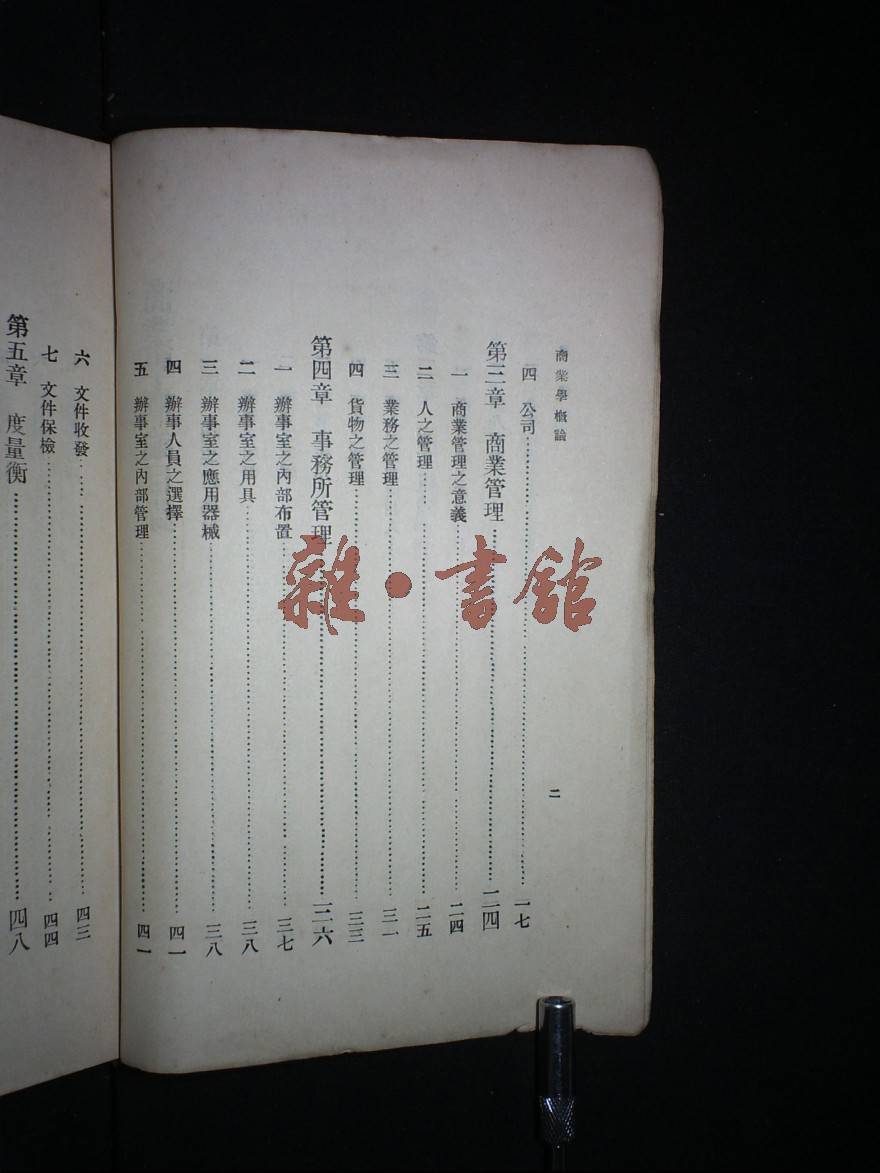 商業學概論
二
四 公司 一七
第三章 商業管理 二四
一 商業管理之意義 二四
二 人之管理 二五
三 業務之管理 三一
四 貨物之管理 三三
第四章 事務所管理 三六
一 辦事室之內部布置 三七
二 辦事室之用具 三八
三 辦事室之應用器械 三八
四 辦事人員之選擇 四一
五 辦事室之內部管理 四一
六 文件收發 四三
七 文件保檢 四四
第五章 度量衡 四八
雜·書館